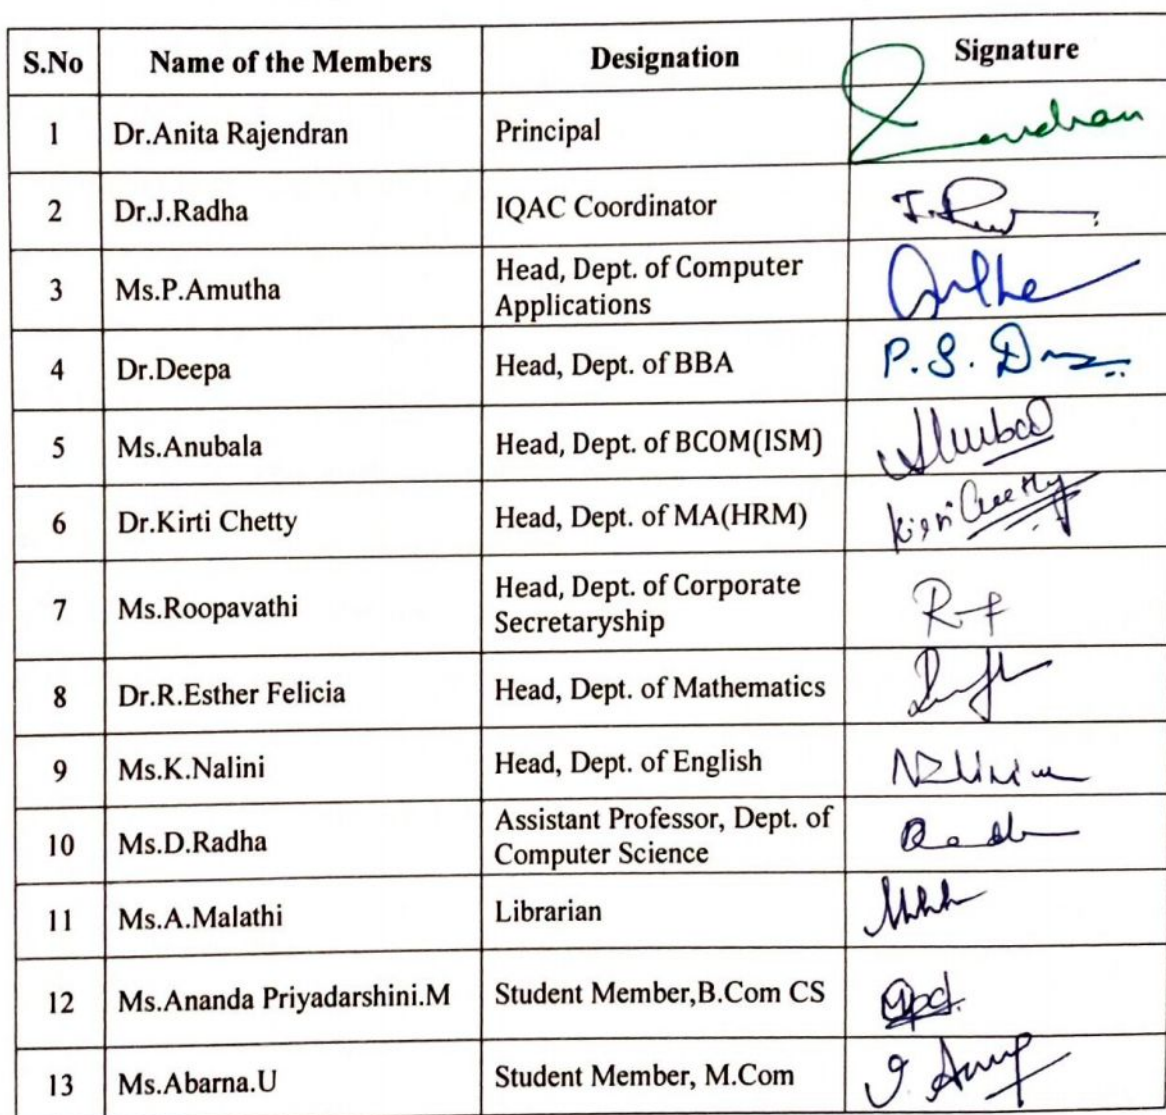 S.No Name of the Members Designation Signature
1 Dr.Anita Rajendran Principal
2 Dr.J.Radha IQAC Coordinator
3 Ms.P.Amutha Head, Dept. of Computer
Applications
4 Dr.Deepa Head, Dept. of BBA P.S. D
5 Ms.Anubala Head, Dept. of BCOM(ISM)
6 Dr.Kirti Chetty Head, Dept. of MA(HRM) Chetty
7 Ms.Roopavathi Head, Dept. of Corporate
Secretaryship
8 Dr.R.Esther Felicia Head, Dept. of Mathematics
9 Ms.K.Nalini Head, Dept. of English
10 Ms.D.Radha Assistant Professor, Dept. of
Computer Science
11 Ms.A.Malathi Librarian
12 Ms.Ananda Priyadarshini.M Student Member,B.Com CS
13 Ms.Abarna.U Student Member, M.Com